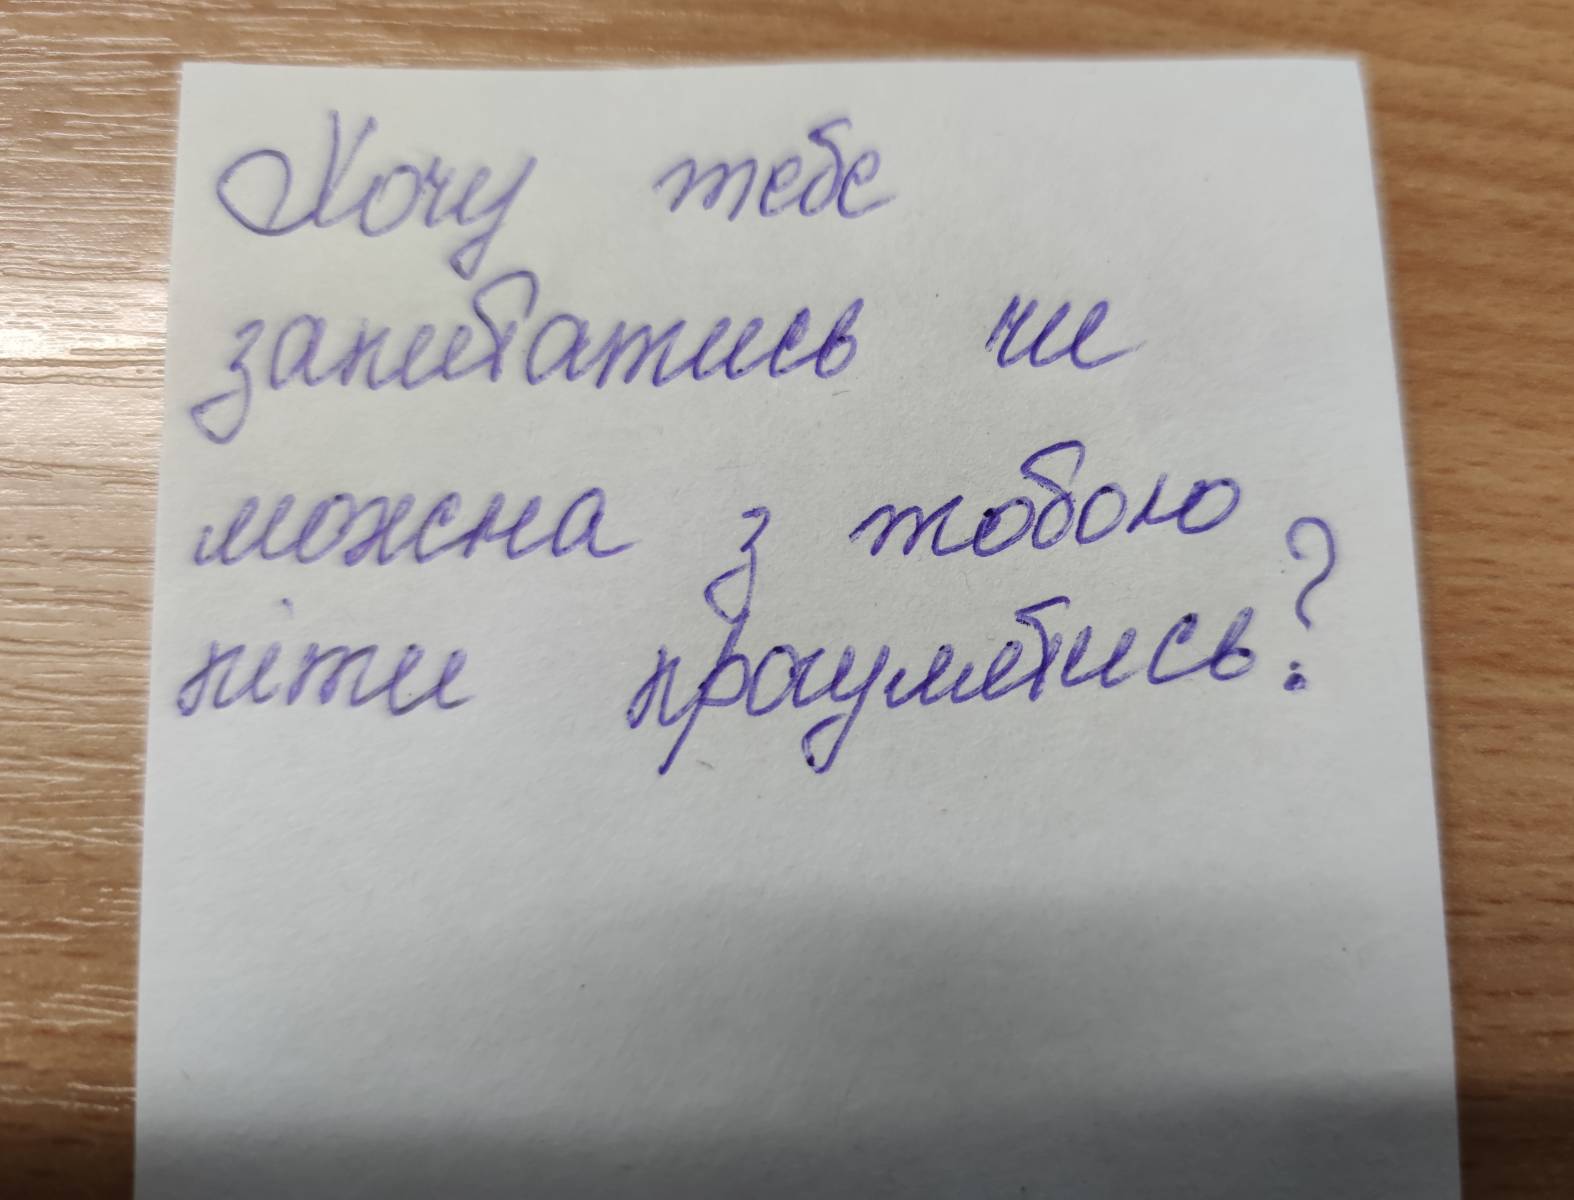 Хочу тебе
запитатись чи
можна з тобою
піти прогулятись?